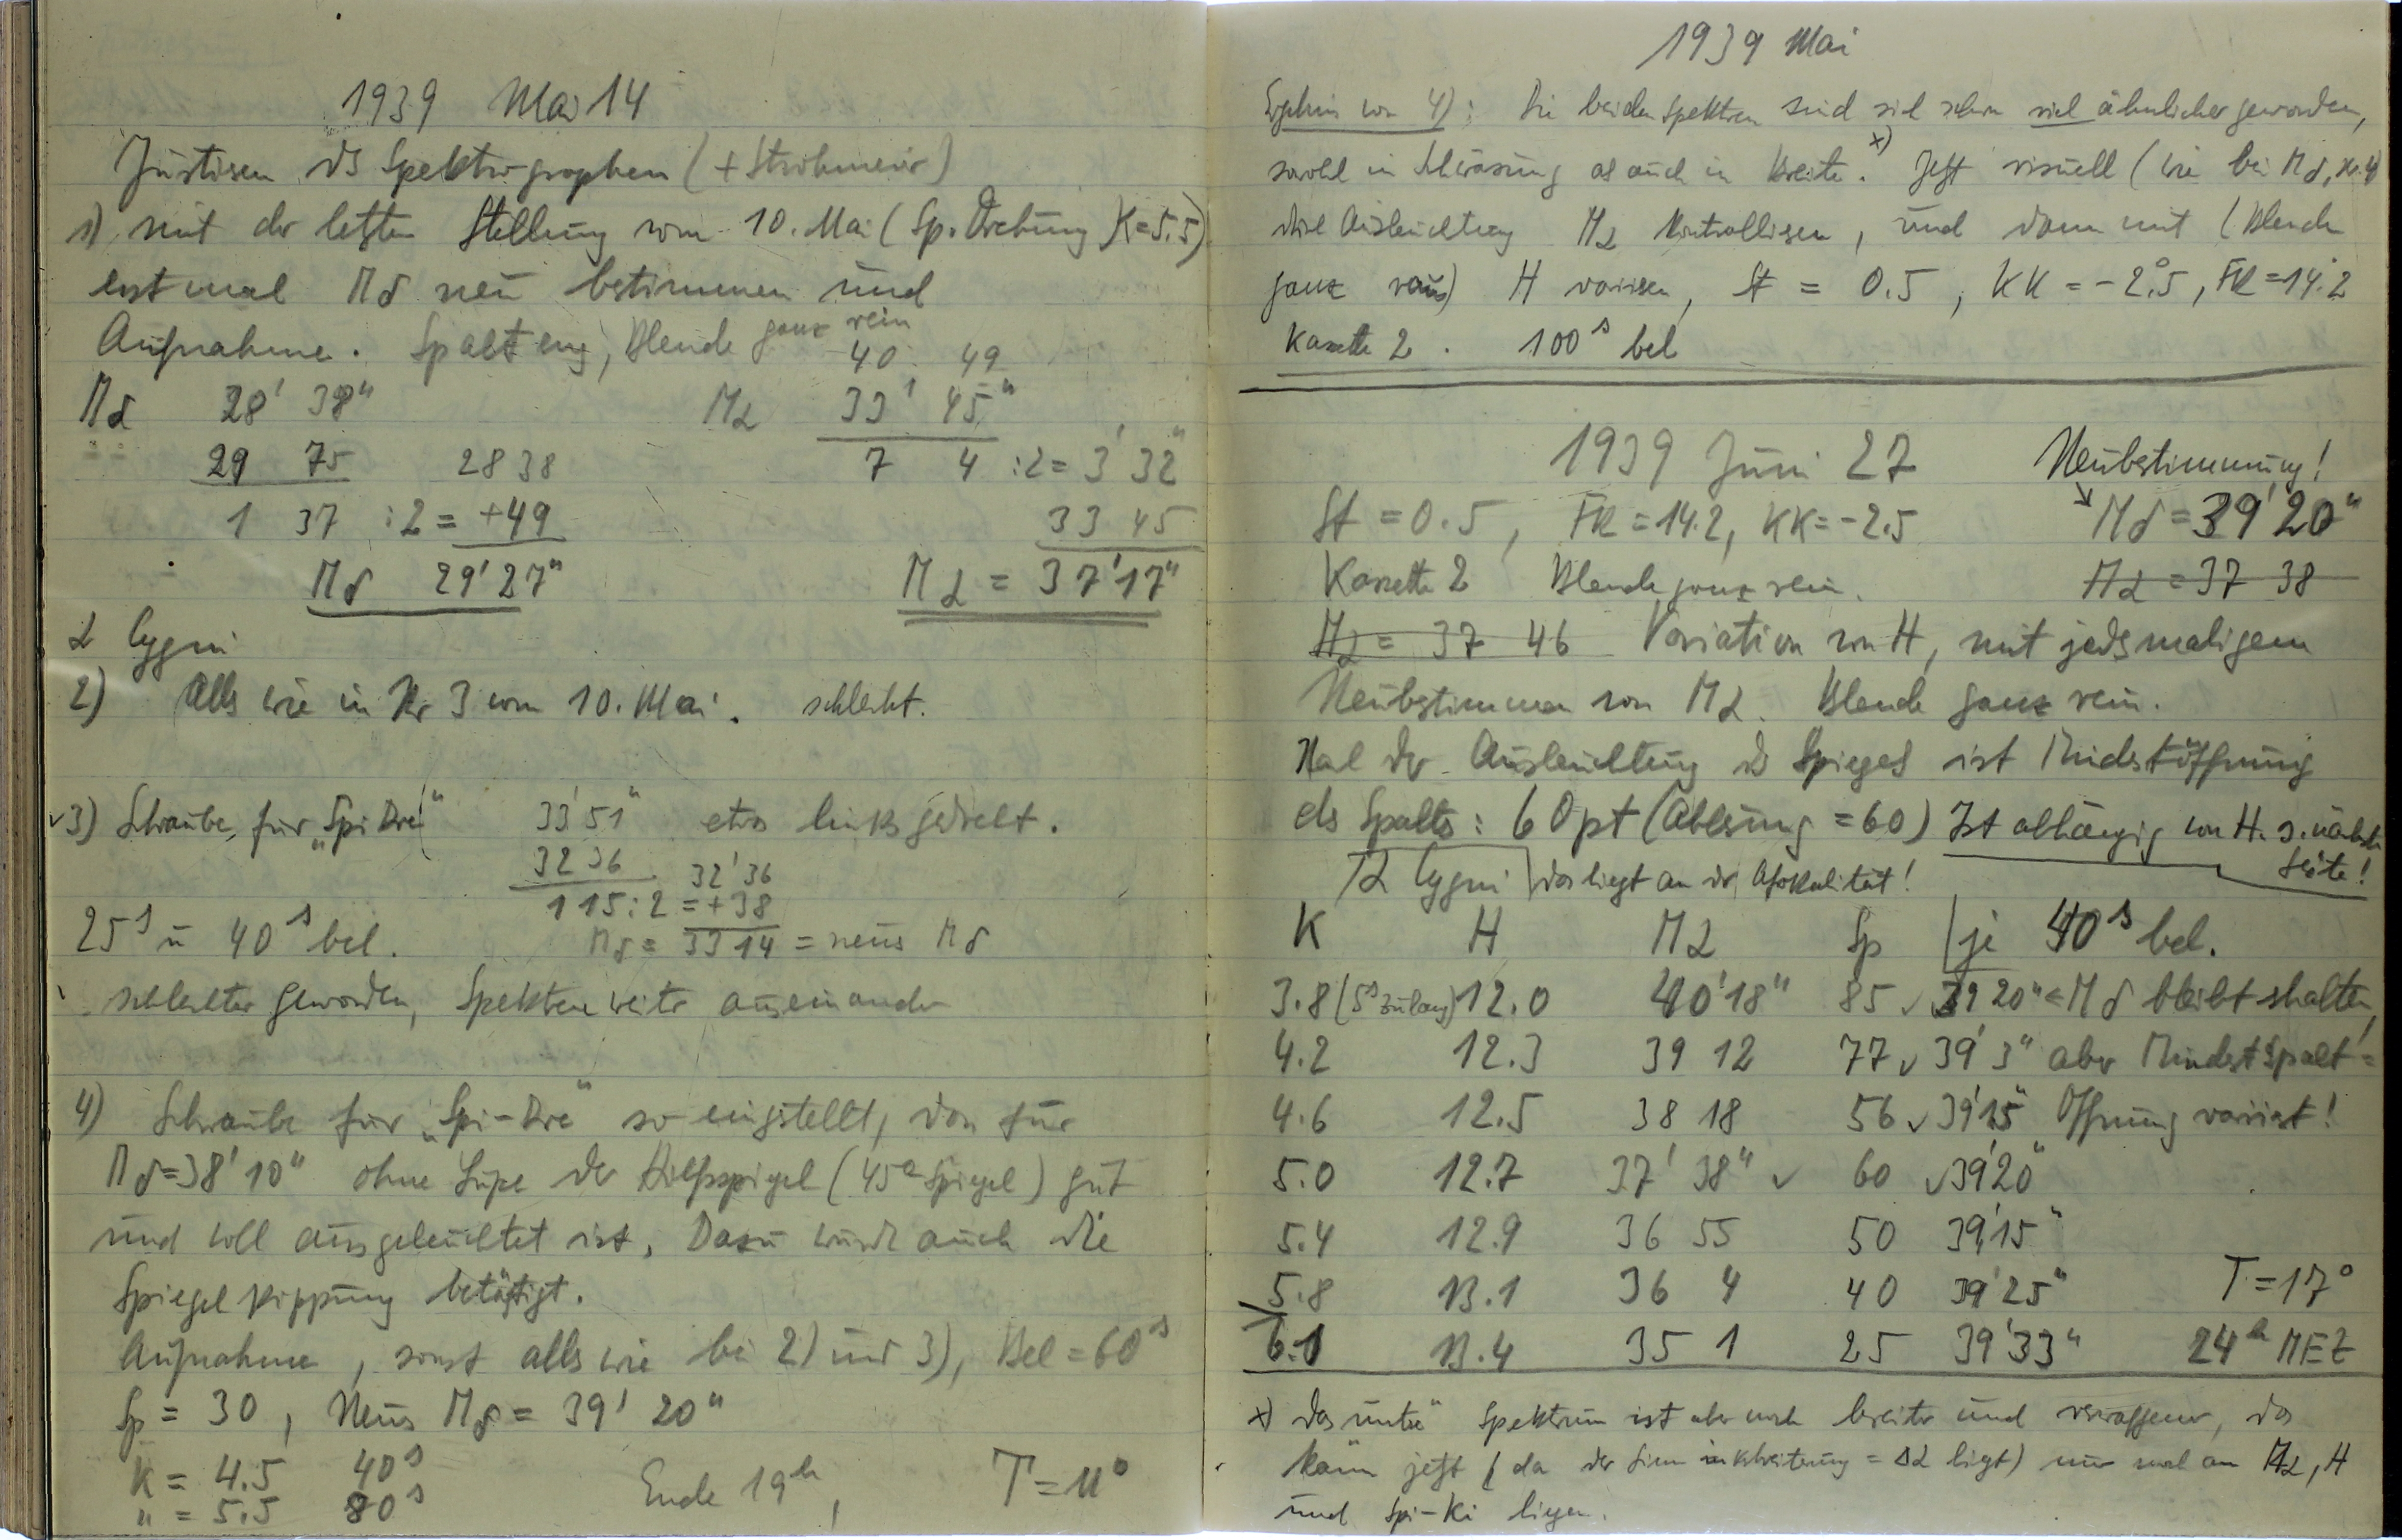 1939 Mai 14
Justieren des Spektrographen (+ Strohmeier)
1) mit der letzten Stellung vom 10. Mai (Sp. Drehung K=5.5)
erst mal Mδ neu bestimmen und
Aufnahme. Spalt eng, Blende ganz rein
Mδ 28' 38"
29 75 28 38
1 37 :2 = +49
Mδ 29' 27"
40 49
Mα 33' 45"
7 4 :2 = 3' 32"
33 45
Mα = 37' 17"
α Cygni
2) Alles wie in Nr 3 vom 10. Mai. schlecht.
3) Schraube für "Spi Dre" 33' 51" etwas links gedreht.
32 36 32' 36
1 15 :2 = +38
25s u 40s bel. Mδ = 33 14 = neues Mδ
schlechter geworden, Spektren weiter auseinander
4) Schraube für "Spi-Dre" so eingestellt, dass für
Mδ=38' 10" ohne Lupe der Hilfsspiegel (45° Spiegel) gut
und voll ausgeleuchtet ist. Dazu wurde auch die
Spiegelkippung betätigt.
Aufnahme, sonst alles wie bei 2) und 3), Bel = 60s
Sp = 30, Neues Mδ = 39' 20"
K = 4.5 40s
" = 5.5 80s Ende 19h, T = 11°
1939 Mai
Ergebnis von 4): Die beiden Spektren sind sich schon viel ähnlicher geworden,
sowohl in Schwärzung als auch in Breite. x) Jetzt visuell (wie bei Mδ, Nr. 4)
die Ausleuchtung Mα kontrollieren, und dann mit (Blende
ganz raus) H variieren, St = 0.5, KK = -2°.5, FR = 14.2
Kassette 2. 100s bel
1939 Juni 27 Neubestimmung!
St = 0.5, FR = 14.2, KK = -2.5 Mδ = 39' 20"
Kassette 2 Blende ganz rein. Mα = 37 38
Mα = 37 46 Variation von H, mit jedesmaligem
Neubestimmen von Mα. Blende ganz rein.
Nach der Ausleuchtung des Spiegels ist Mindestöffnung
des Spalts: 60 pt (Ablesung = 60) Ist abhängig von H. s. nächste
Seite!
α Cygni das liegt an der Afokalität!
K H Mα Sp je 40s bel.
3.8 (5s zu lang) 12.0 40' 18" 85 ✓ 39 20" = Mδ bleibt erhalten,
4.2 12.3 39 12 77 ✓ 39' 3" aber Mindestspalt=
4.6 12.5 38 18 56 ✓ 39' 15" Öffnung variiert!
5.0 12.7 37' 38" ✓ 60 ✓ 39' 20"
5.4 12.9 36 55 50 39' 15"
5.8 13.1 36 4 40 39' 25" T = 17°
6.1 13.4 35 1 25 39' 33" 24h MEZ
x) Das untere Spektrum ist aber noch breiter und verwaschener, das
kann jetzt (da der Sinn in Verbreiterung = Δα liegt) nur noch an Mα, H
und Spi-Ki liegen.